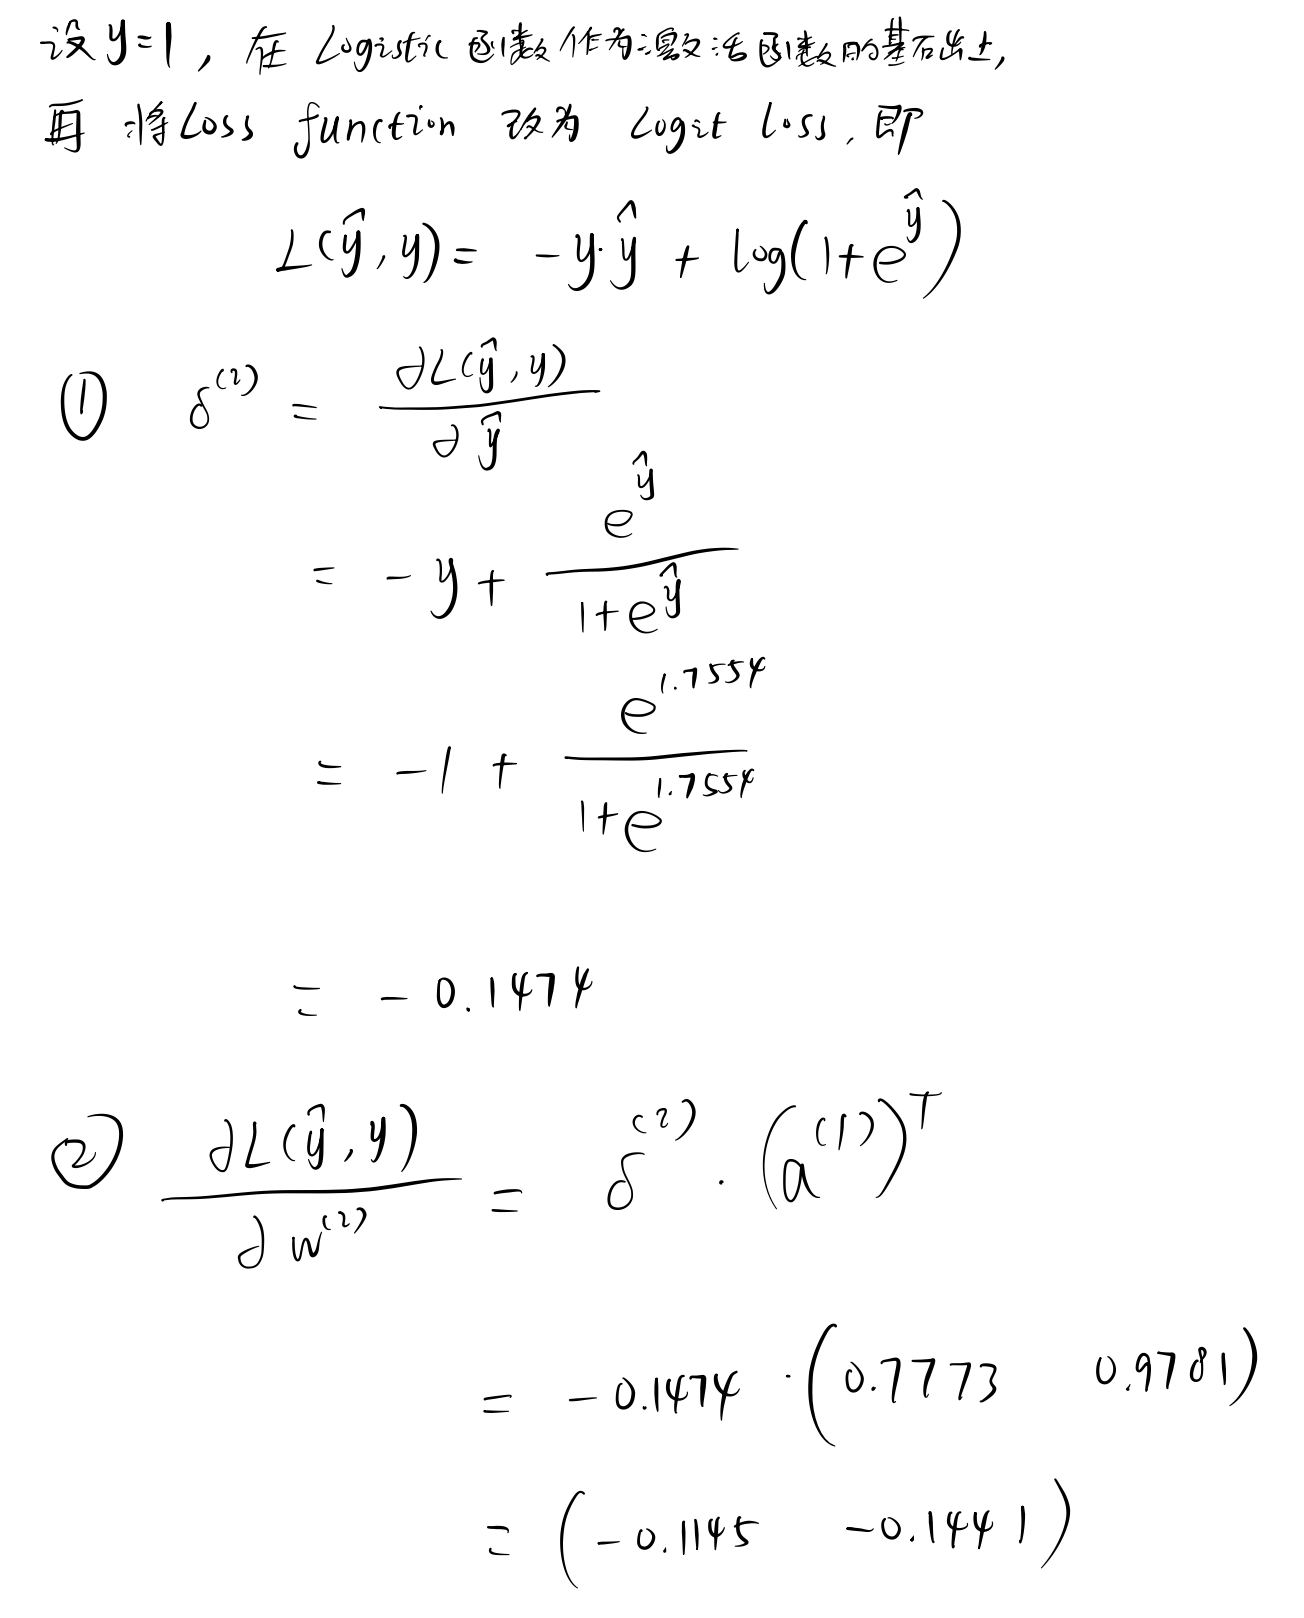 设 y=1, 在 Logistic 函数作为激活函数的基础上,
再将 Loss function 改为 Logit loss, 即
L(ŷ, y) = -y·ŷ + log(1+e^ŷ)
① δ^(2) = ∂L(ŷ, y) / ∂ŷ
= -y + e^ŷ / (1+e^ŷ)
= -1 + e^1.7554 / (1+e^1.7554)
= -0.1474
② ∂L(ŷ, y) / ∂w^(2) = δ^(2) · (a^(1))^T
= -0.1474 · (0.7773 0.9781)
= (-0.1145 -0.1441)